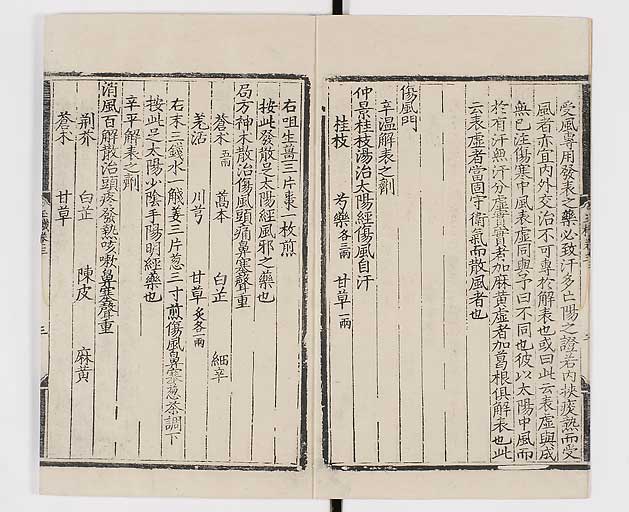 受風專用發表之藥必致汗多亡陽之證若內挾痰熱而受
風者亦宜內外交治不可專於解表也或曰此云表虛與成
無已注傷寒中風表虛同與予曰不同也彼以太陽中風而
於有汗無汗分虛實實者加麻黃虛者加葛根俱解表也此
云表虛者當固守衛氣而散風者也
傷風門
辛溫解表之劑
仲景桂枝湯治太陽經傷風自汗
桂枝 芍藥各三兩 甘草一兩
右咀生薑三片棗一枚煎
按此發散足太陽經風邪之藥也
局方神朮散治傷風頭痛鼻塞聲重
蒼朮五兩 藁本 白芷 細辛
羌活 川芎 甘草炙各一兩
右末三錢水一醆姜三片葱三寸煎傷風鼻塞葱茶調下
按此足太陽少陰手陽明經藥也
辛平解表之劑
消風百解散治頭疼發熱咳嗽鼻塞聲重
荊芥 白芷 陳皮 麻黃
蒼朮 甘草
三